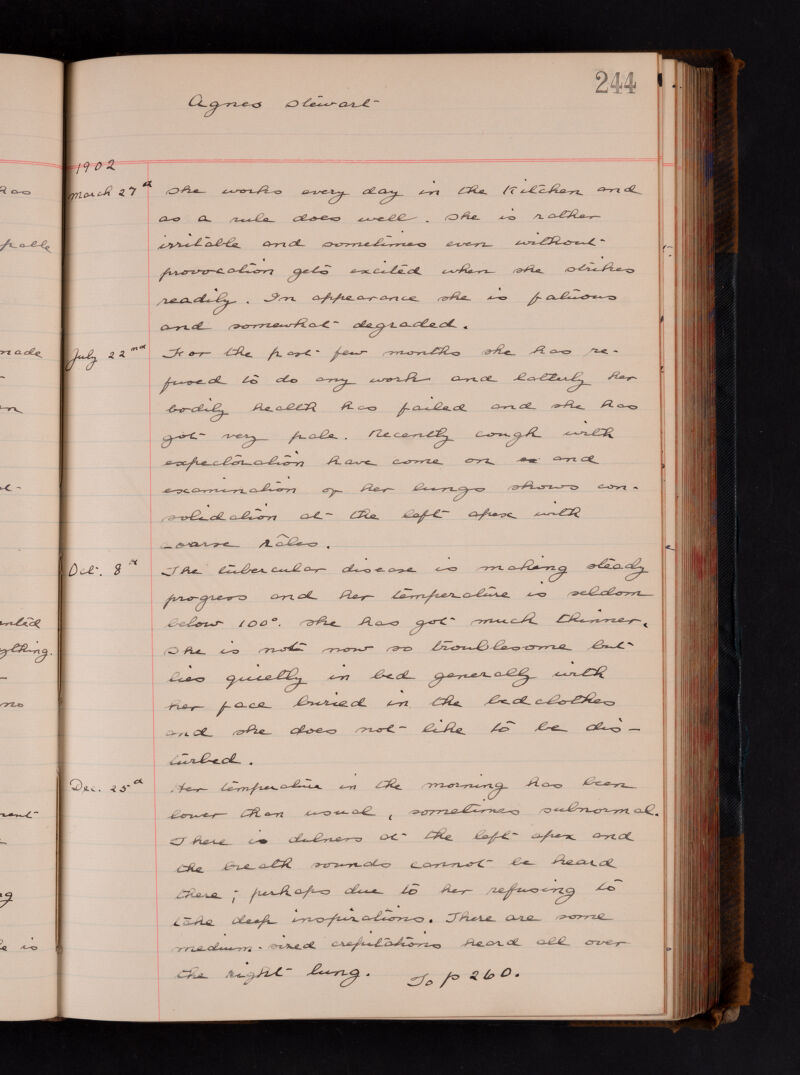 244
Agnes Stewart
1902
March 27th She works every day in the Kitchen and
as a rule does well. She is rather
irritable and sometimes even without
provocation gets excited when she strikes
readily. In appearance she is fatuous
and somewhat degraded.
July 22nd For the past few months she has re-
fused to do any work and latterly her
bodily health has failed and she has
got very pale. Recently cough with
expectoration have come on and
examination of her lungs shows con-
solidation at the left apex with
coarse râles.
Oct. 8th The tubercular disease is making steady
progress and her temperature is seldom
below 100°. She has got much thinner.
She is not now so troublesome but
lies quietly in bed generally with
her face buried in the bedclothes
and she does not like to be dis-
turbed.
Dec. 25th Her temperature in the morning has been
lower than usual, sometimes subnormal.
There is dulness at the left apex and
the breath sounds cannot be heard
there; perhaps due to her refusing to
take deep inspirations. There are some
medium-sized crepitations heard all over
the right lung. To p 260.